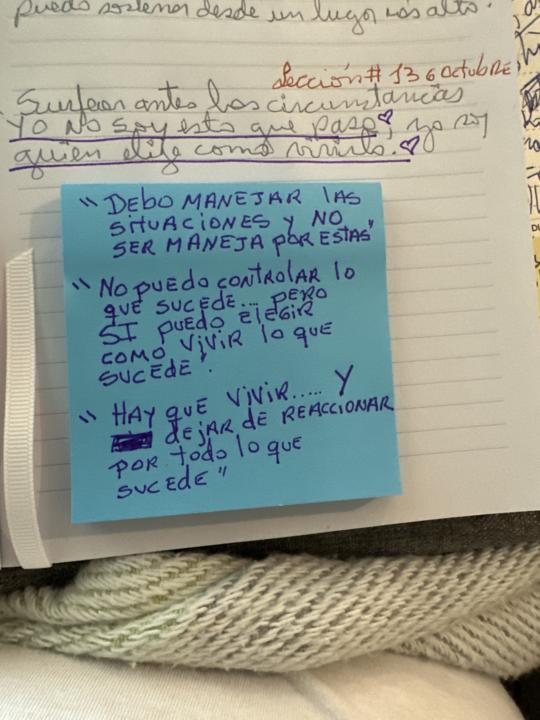 puedo sostener desde un lugar más alto.
Lección # 13 6 Octubre
Surfear antes las circunstancias
Yo no soy esto que paso, yo soy
quien elije como vivirlo.
"DEBO MANEJAR LAS
SITUACIONES Y NO
SER MANEJA POR ESTAS"
"NO PUEDO CONTROLAR lo
QUE SUCEDE... PERO
SI PUEDO ELEGIR
COMO VIVIR lo QUE
SUCEDE".
"HAY QUE VIVIR..... Y
DEJAR DE REACCIONAR
POR TODO lo QUE
SUCEDE"